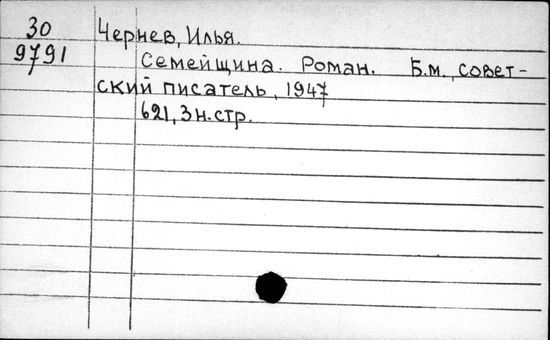 30 Чернев, Илья.
9791 Семейщина. Роман. Б.м., совет-
ский писатель, 1947
621, 3 н.стр.